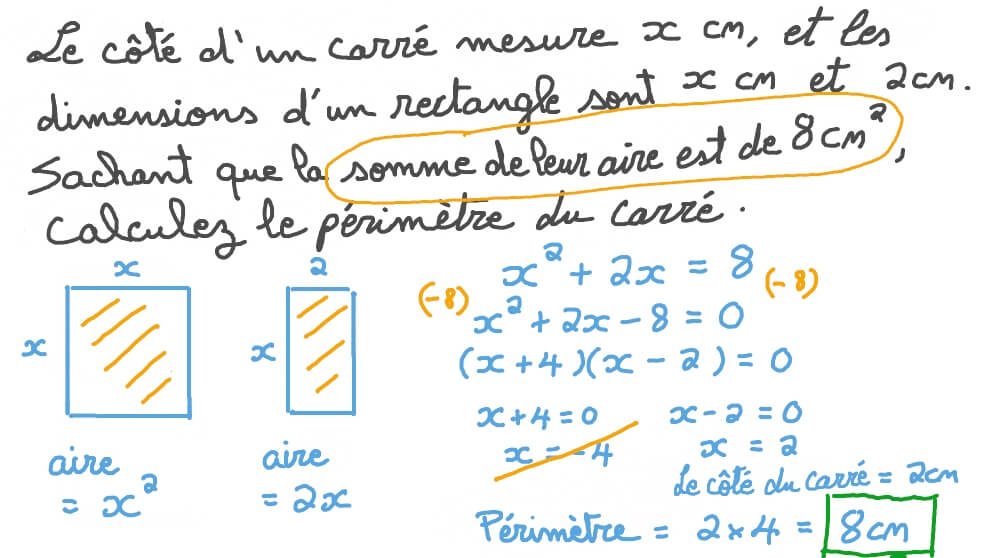 Le côté d'un carré mesure x cm, et les
dimensions d'un rectangle sont x cm et 2cm.
Sachant que la somme de leur aire est de 8cm²,
calculez le périmètre du carré.
x
2
x
x
aire
= x²
aire
= 2x
x² + 2x = 8
(-8) x² + 2x - 8 = 0 (-8)
(x + 4)(x - 2) = 0
x + 4 = 0 x - 2 = 0
x = -4 x = 2
Le côté du carré = 2cm
Périmètre = 2 × 4 = 8cm